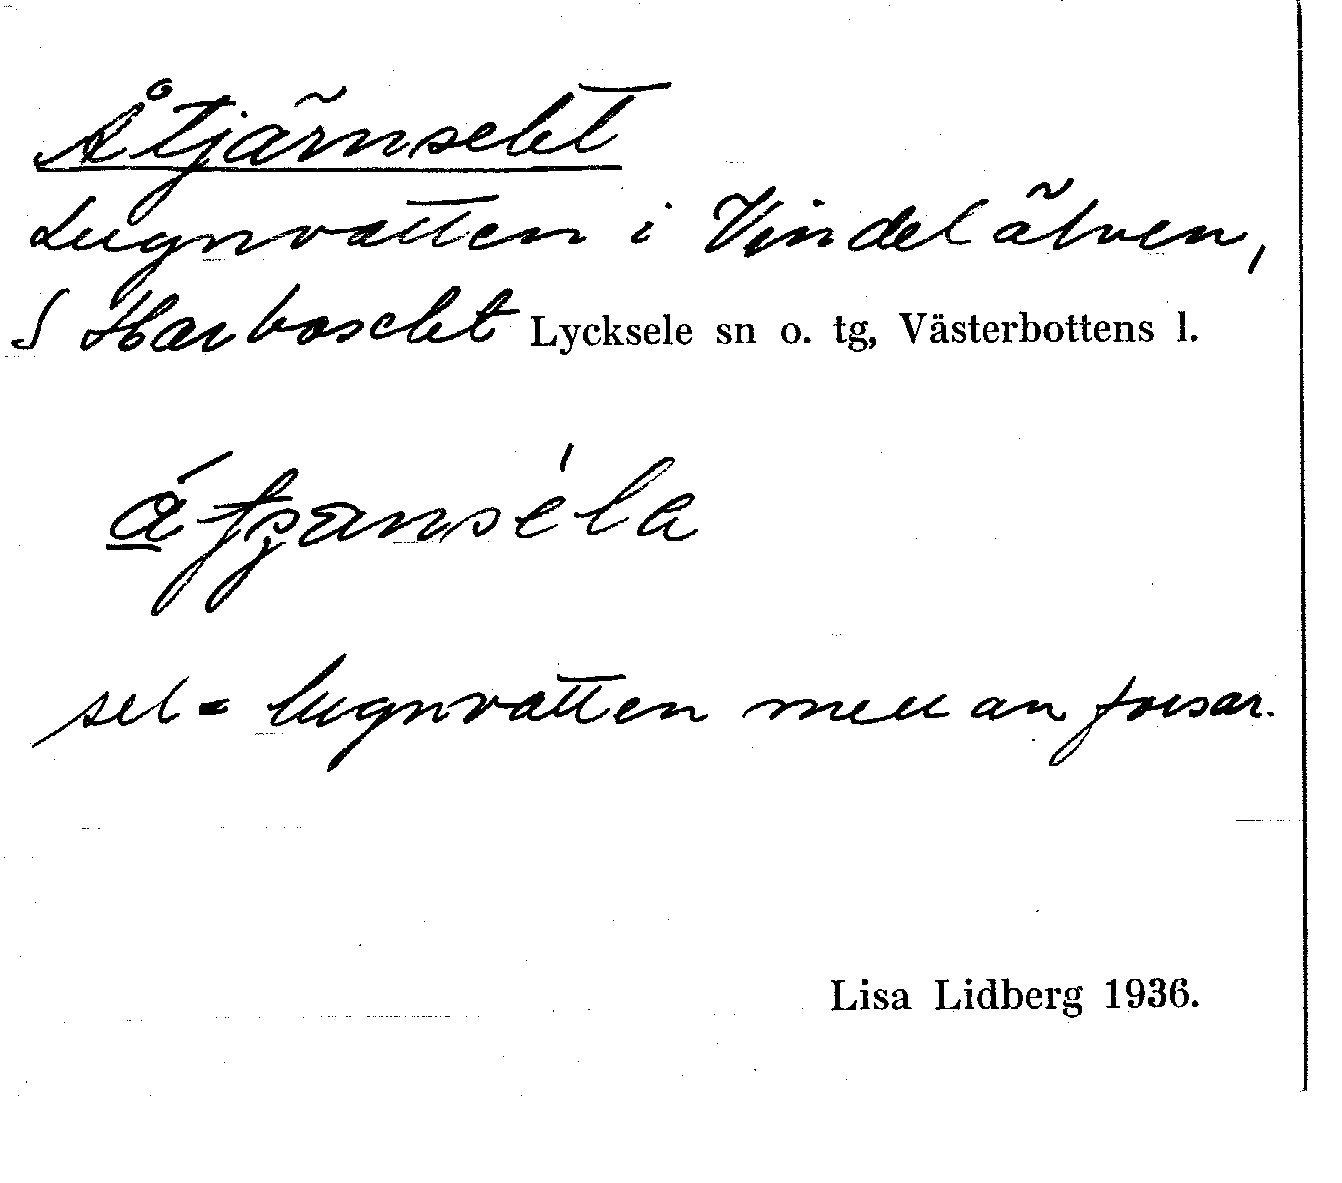 Åtjärnselet
Lugnvatten i Vindelälven,
S Harboselet Lycksele sn o. tg, Västerbottens l.
sel = lugnvatten mellan forsar.
Lisa Lidberg 1936.